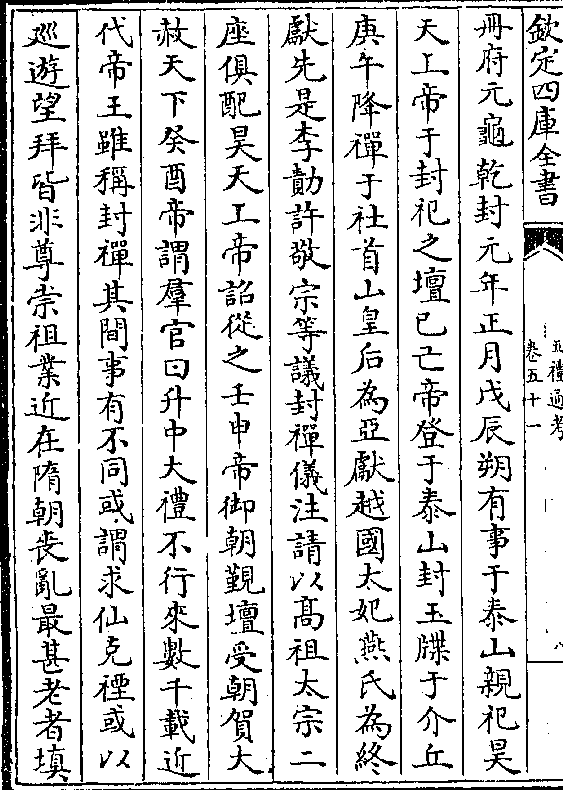 欽定四庫全書
五禮通考
卷五十一
八
冊府元龜乾封元年正月戊辰朔有事于泰山親祀昊
天上帝于封祀之壇已亡帝登于泰山封玉牒于介丘
庚午降禪于社首山皇后為亞獻越國太妃燕氏為終
獻先是李勣許敬宗等議封禪儀注請以髙祖太宗二
座俱配昊天上帝詔從之壬申帝御朝覲壇受朝賀大
赦天下癸酉帝謂羣官曰升中大禮不行來數千載近
代帝王雖稱封禪其間事有不同或謂求仙克禋或以
廵遊望拜皆非尊崇祖業近在隋朝丧亂最甚老者填